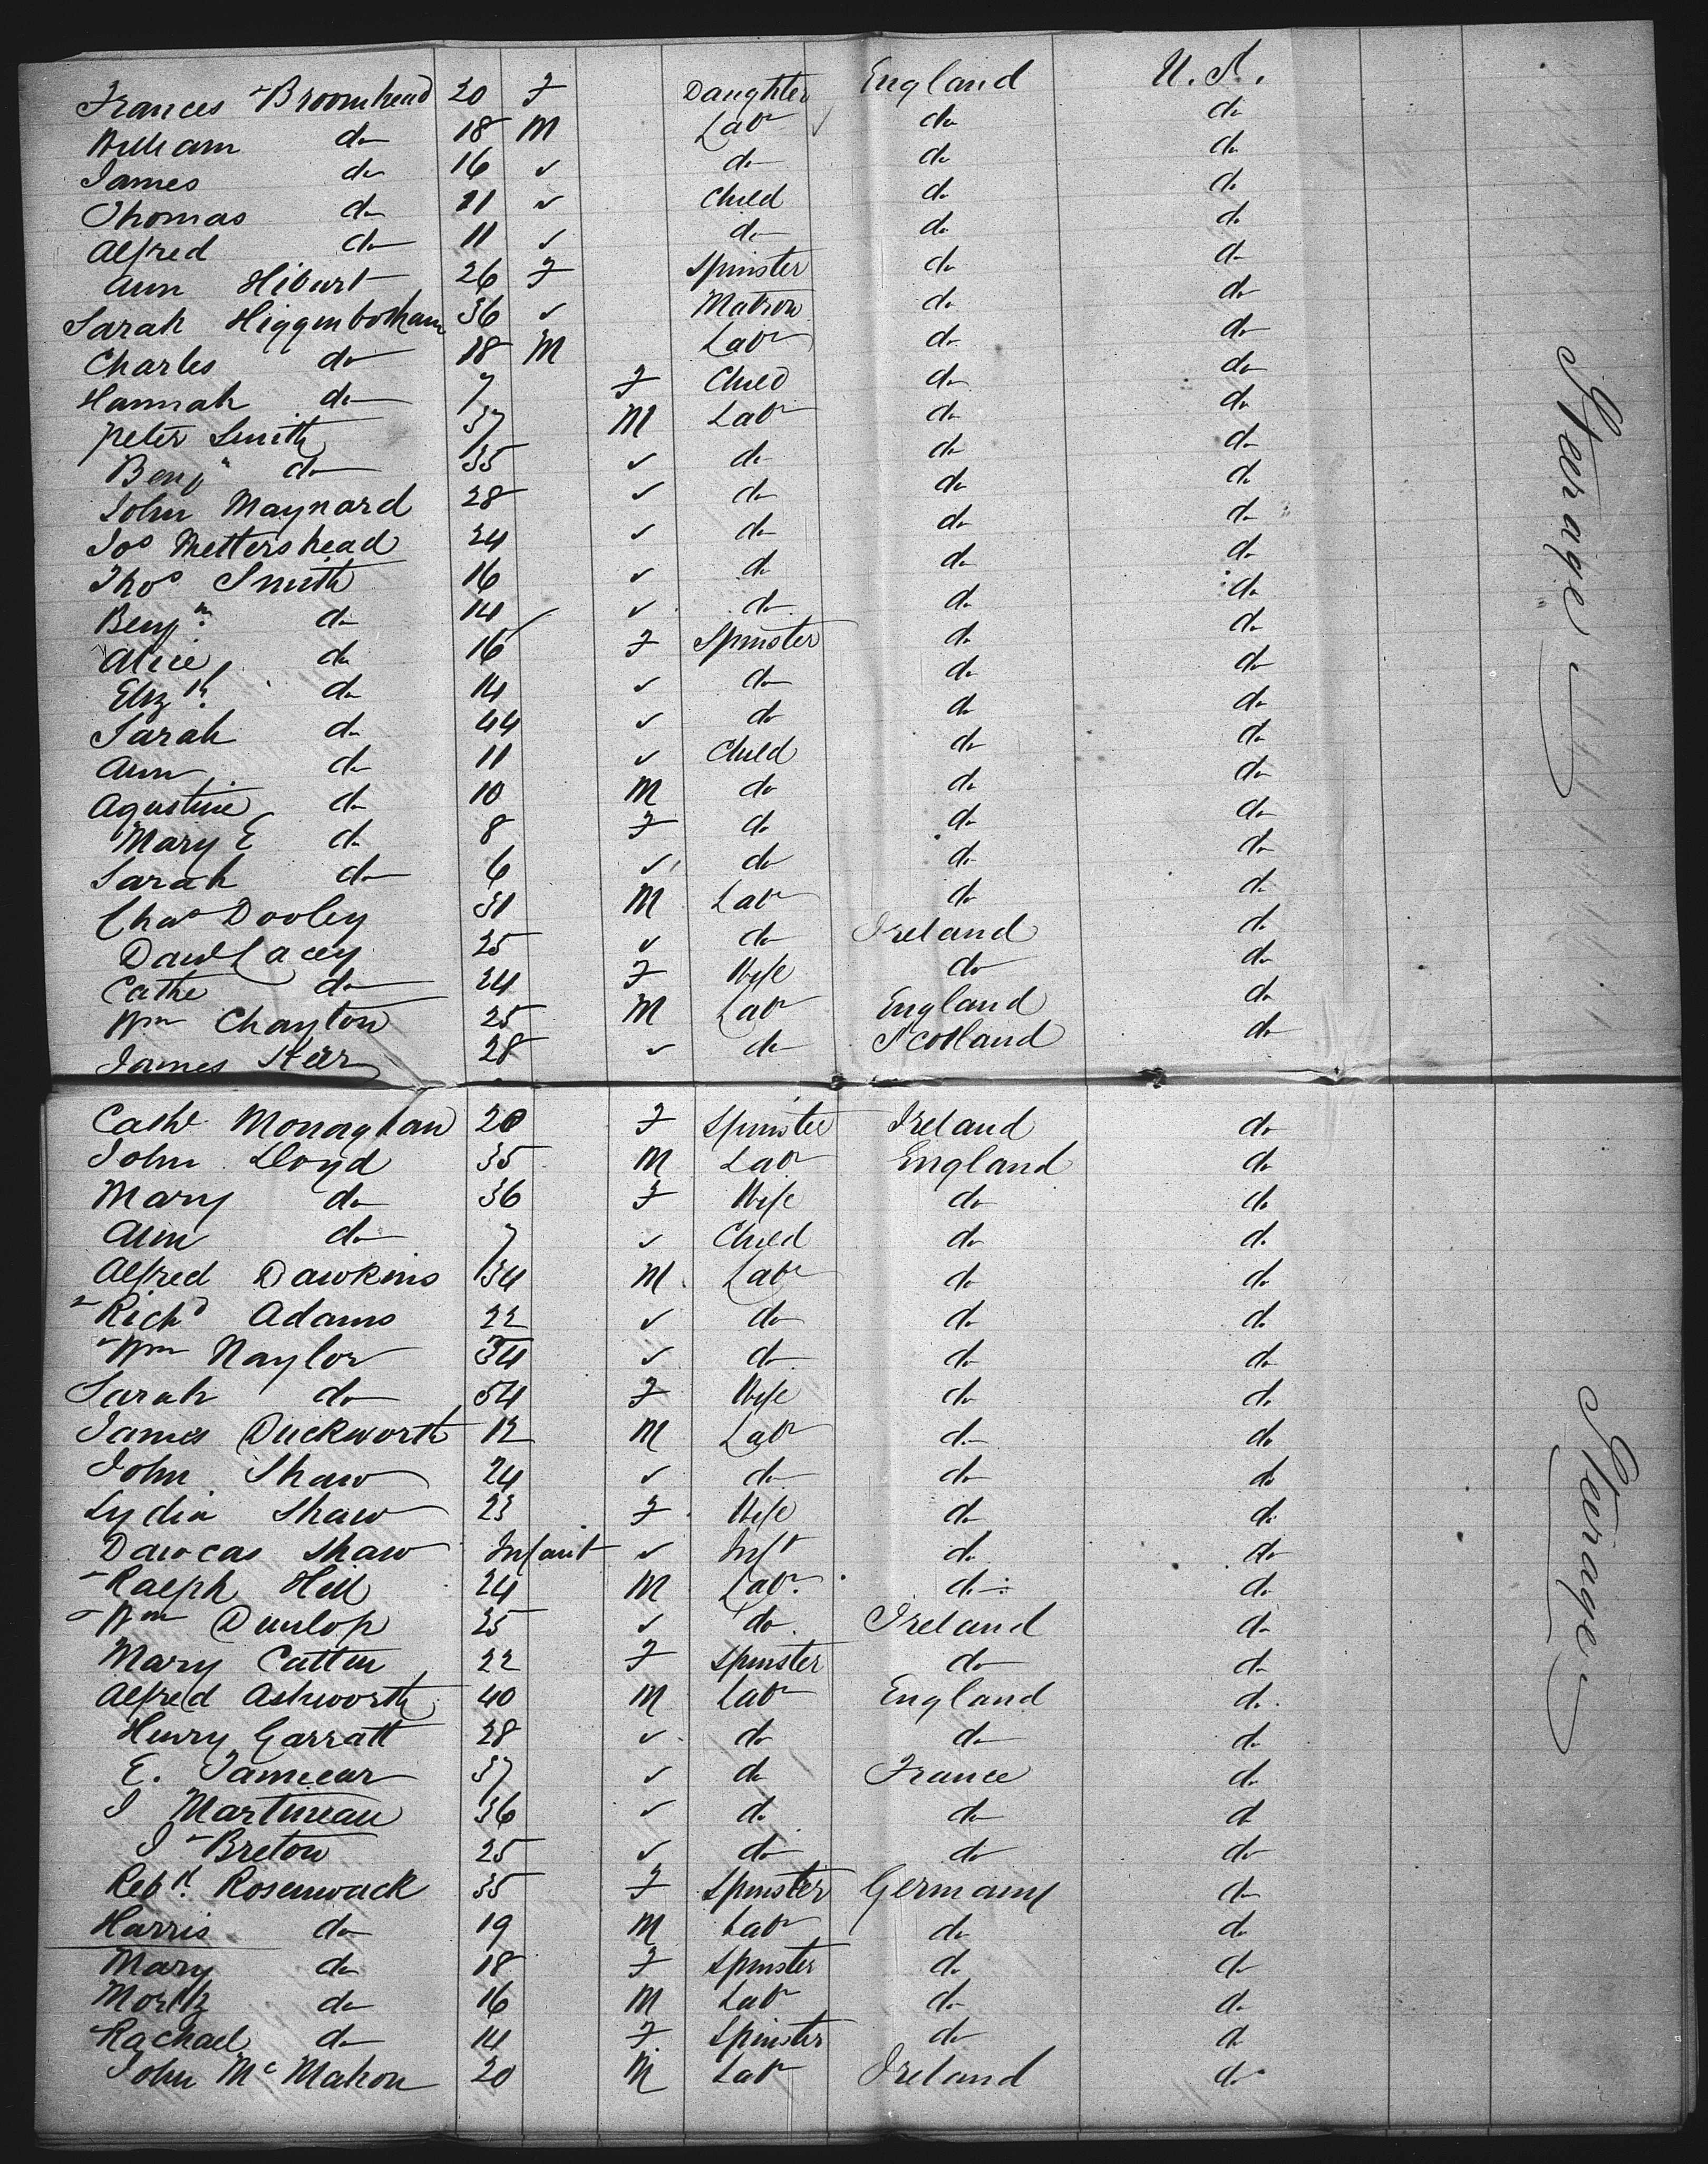 Frances Broomhead 20 F Daughter England U.S.
William do 18 M Labr do do
James do 16 ✓ do do do
Thomas do 11 ✓ Child do do
Alfred do 11 ✓ do do do
Ann Hibart 26 F Spinster do do
Sarah Higgenbotham 36 ✓ Matron do do
Charles do 18 M Labr do do
Hannah do 7 F Child do do
Peter Smith 37 M Labr do do
Benjn do 35 ✓ do do do
John Maynard 28 ✓ do do do
Jos Mettershead 24 ✓ do do do
Thos Smith 16 ✓ do do do
Benjn do 14 ✓ do do do
Alice do 16 F Spinster do do
Elizth do 14 ✓ do do do
Sarah do 44 ✓ do do do
Ann do 11 ✓ Child do do
Agustine do 10 M do do do
Mary E do 8 F do do do
Sarah do 6 ✓ do do do
Chas Dooley 31 M Labr do do
Danl Lacey 25 ✓ do Ireland do
Cathe do 24 F Wife do do
Wm Chayton 25 M Labr England do
James Kerr 28 ✓ do Scotland do
Steerage
Cathe Monaghan 20 F Spinster Ireland do
John Lloyd 35 M Labr England do
Mary do 36 F Wife do do
Ann do 7 ✓ Child do do
Alfred Dawkins 34 M Labr do do
Richd Adams 22 ✓ do do do
Wm Naylor 34 ✓ do do do
Sarah do 54 F Wife do do
James Duckworth 12 M Labr do do
John Shaw 24 ✓ do do do
Lydia Shaw 23 F Wife do do
Dawcas Shaw Infant ✓ Inft do do
Ralph Hill 24 M Labr do do
Wm Dunlop 25 ✓ do Ireland do
Mary Catten 22 F Spinster do do
Alfred Ashworth 40 M Labr England do
Henry Garratt 28 ✓ do do do
E. 37 ✓ do France do
J Martineau 36 ✓ do do do
J Breton 25 ✓ do do do
Rebh Rosenwack 35 F Spinster Germany do
Harris do 19 M Labr do do
Mary do 18 F Spinster do do
Moritz do 16 M Labr do do
Rachael do 14 F Spinster do do
John McMahon 20 M Labr Ireland do
Steerage